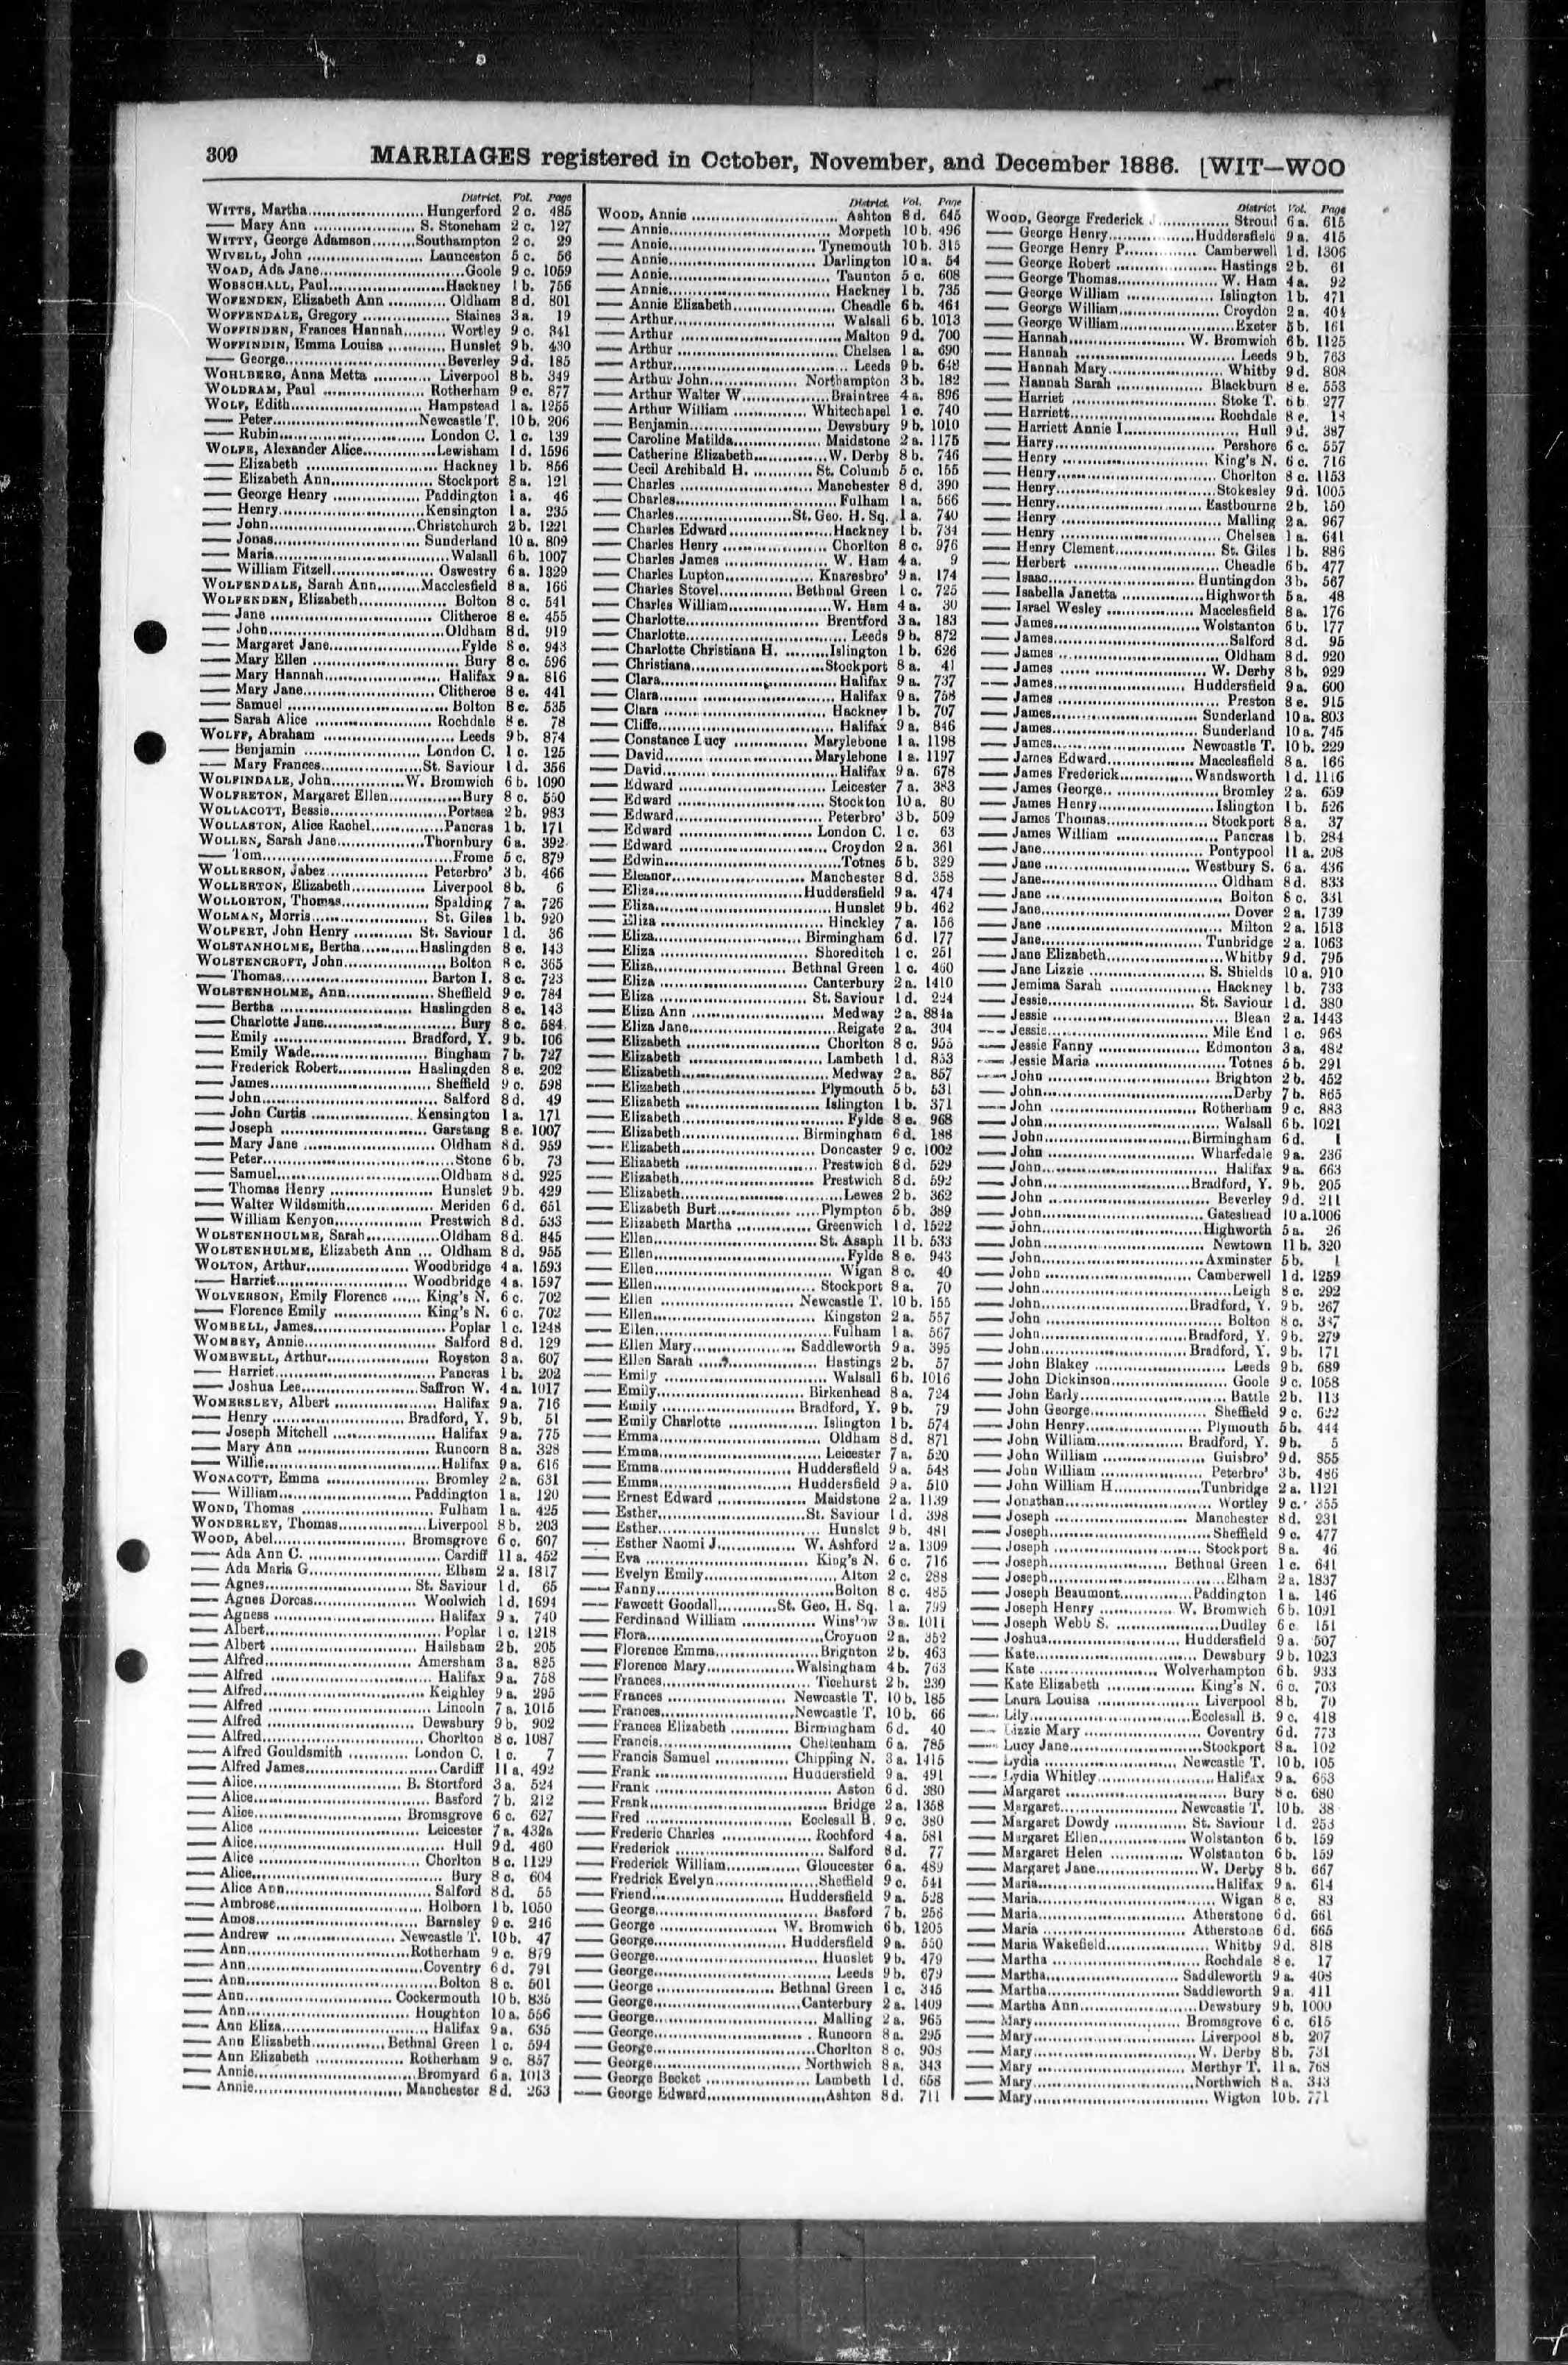 309 MARRIAGES registered in October, November, and December 1886. [WIT—WOO
District. Vol. Page
WITTS, Martha........Hungerford 2 c. 485
— Mary Ann ........ S. Stoneham 2 c. 127
WITTY, George Adamson........Southampton 2 c. 29
WIVELL, John ........ Launceston 5 c. 56
WOAD, Ada Jane........Goole 9 c. 1059
WOBSCHALL, Paul........Hackney 1 b. 756
WOFENDEN, Elizabeth Ann ........ Oldham 8 d. 801
WOFFENDALE, Gregory ........ Staines 3 a. 19
WOFFINDEN, Frances Hannah........ Wortley 9 c. 341
WOFFINDIN, Emma Louisa ........ Hunslet 9 b. 430
— George........Beverley 9 d. 185
WOHLBERG, Anna Metta ........ Liverpool 8 b. 349
WOLDRAM, Paul ........ Rotherham 9 c. 877
WOLF, Edith........ Hampstead 1 a. 1255
— Peter........Newcastle T. 10 b. 206
— Rubin........ London C. 1 c. 139
WOLFE, Alexander Alice........Lewisham 1 d. 1596
— Elizabeth ........ Hackney 1 b. 856
— Elizabeth Ann........ Stockport 8 a. 121
— George Henry ........ Paddington 1 a. 46
— Henry........Kensington 1 a. 235
— John........Christchurch 2 b. 1221
— Jonas........ Sunderland 10 a. 809
— Maria........Walsall 6 b. 1007
— William Fitzell........ Oswestry 6 a. 1329
WOLFENDALE, Sarah Ann........Macclesfield 8 a. 166
WOLFENDEN, Elizabeth........ Bolton 8 c. 541
— Jane ........ Clitheroe 8 e. 455
— John........Oldham 8 d. 919
— Margaret Jane........Fylde 8 e. 943
— Mary Ellen ........ Bury 8 c. 596
— Mary Hannah........ Halifax 9 a. 816
— Mary Jane........ Clitheroe 8 e. 441
— Samuel ........ Bolton 8 c. 535
— Sarah Alice ........ Rochdale 8 e. 78
WOLFF, Abraham ........ Leeds 9 b. 874
— Benjamin ........ London C. 1 c. 125
— Mary Frances........St. Saviour 1 d. 356
WOLFINDALE, John........W. Bromwich 6 b. 1090
WOLFRETON, Margaret Ellen........Bury 8 c. 550
WOLLACOTT, Bessie........Portsea 2 b. 983
WOLLASTON, Alice Rachel........Pancras 1 b. 171
WOLLEN, Sarah Jane........Thornbury 6 a. 392
— Tom........Frome 5 c. 879
WOLLERSON, Jabez ........ Peterbro' 3 b. 466
WOLLERTON, Elizabeth........ Liverpool 8 b. 6
WOLLORTON, Thomas........ Spalding 7 a. 726
WOLMAN, Morris........ St. Giles 1 b. 920
WOLPERT, John Henry ........ St. Saviour 1 d. 36
WOLSTANHOLME, Bertha........Haslingden 8 e. 143
WOLSTENCROFT, John........ Bolton 8 c. 365
— Thomas........ Barton I. 8 c. 723
WOLSTENHOLME, Ann........ Sheffield 9 c. 784
— Bertha ........ Haslingden 8 e. 143
— Charlotte Jane........ Bury 8 c. 584
— Emily ........ Bradford, Y. 9 b. 106
— Emily Wade........ Bingham 7 b. 727
— Frederick Robert........ Haslingden 8 e. 202
— James........ Sheffield 9 c. 598
— John........ Salford 8 d. 49
— John Curtis ........ Kensington 1 a. 171
— Joseph ........ Garstang 8 e. 1007
— Mary Jane ........ Oldham 8 d. 959
— Peter........Stone 6 b. 73
— Samuel........Oldham 8 d. 925
— Thomas Henry ........ Hunslet 9 b. 429
— Walter Wildsmith........ Meriden 6 d. 651
— William Kenyon........ Prestwich 8 d. 533
WOLSTENHOULME, Sarah........Oldham 8 d. 845
WOLSTENHULME, Elizabeth Ann ... Oldham 8 d. 955
WOLTON, Arthur........ Woodbridge 4 a. 1593
— Harriet........ Woodbridge 4 a. 1597
WOLVERSON, Emily Florence ...... King's N. 6 c. 702
— Florence Emily ........ King's N. 6 c. 702
WOMBELL, James........Poplar 1 c. 1248
WOMBEY, Annie........ Salford 8 d. 129
WOMBWELL, Arthur........ Royston 3 a. 607
— Harriet........ Pancras 1 b. 202
— Joshua Lee........Saffron W. 4 a. 1017
WOMERSLEY, Albert ........ Halifax 9 a. 716
— Henry ........ Bradford, Y. 9 b. 51
— Joseph Mitchell ........ Halifax 9 a. 775
— Mary Ann ........ Runcorn 8 a. 328
— Willie........Halifax 9 a. 616
WONACOTT, Emma ........ Bromley 2 a. 631
— William........ Paddington 1 a. 120
WOND, Thomas ........ Fulham 1 a. 425
WONDERLEY, Thomas........Liverpool 8 b. 203
WOOD, Abel........ Bromsgrove 6 c. 607
— Ada Ann C. ........ Cardiff 11 a. 452
— Ada Maria G........ Elham 2 a. 1817
— Agnes........ St. Saviour 1 d. 65
— Agnes Dorcas........ Woolwich 1 d. 1694
— Agness ........ Halifax 9 a. 740
— Albert........Poplar 1 c. 1218
— Albert ........ Hailsham 2 b. 205
— Alfred........ Amersham 3 a. 825
— Alfred ........ Halifax 9 a. 758
— Alfred........ Keighley 9 a. 295
— Alfred ........ Lincoln 7 a. 1015
— Alfred ........ Dewsbury 9 b. 902
— Alfred........ Chorlton 8 c. 1087
— Alfred Gouldsmith ........ London C. 1 c. 7
— Alfred James........Cardiff 11 a. 492
— Alice........ B. Stortford 3 a. 524
— Alice........ Basford 7 b. 212
— Alice........ Bromsgrove 6 c. 627
— Alice ........ Leicester 7 a. 432a
— Alice........ Hull 9 d. 460
— Alice ........ Chorlton 8 c. 1129
— Alice........ Bury 8 c. 604
— Alice Ann........ Salford 8 d. 55
— Ambrose........ Holborn 1 b. 1050
— Amos........ Barnsley 9 c. 216
— Andrew ........ Newcastle T. 10 b. 47
— Ann........Rotherham 9 c. 879
— Ann........Coventry 6 d. 791
— Ann........Bolton 8 c. 501
— Ann........ Cockermouth 10 b. 835
— Ann........ Houghton 10 a. 556
— Ann Eliza........ Halifax 9 a. 635
— Ann Elizabeth........ Bethnal Green 1 c. 594
— Ann Elizabeth ........ Rotherham 9 c. 857
— Annie........Bromyard 6 a. 1013
— Annie........ Manchester 8 d. 263
District. Vol. Page
WOOD, Annie ........ Ashton 8 d. 645
— Annie........ Morpeth 10 b. 496
— Annie........ Tynemouth 10 b. 315
— Annie........ Darlington 10 a. 54
— Annie........ Taunton 5 c. 608
— Annie........ Hackney 1 b. 735
— Annie Elizabeth........ Cheadle 6 b. 461
— Arthur........ Walsall 6 b. 1013
— Arthur ........ Malton 9 d. 700
— Arthur ........ Chelsea 1 a. 690
— Arthur........ Leeds 9 b. 648
— Arthur John........ Northampton 3 b. 182
— Arthur Walter W........Braintree 4 a. 896
— Arthur William ........ Whitechapel 1 c. 740
— Benjamin........ Dewsbury 9 b. 1010
— Caroline Matilda........ Maidstone 2 a. 1175
— Catherine Elizabeth........W. Derby 8 b. 746
— Cecil Archibald H. ........ St. Columb 5 c. 155
— Charles ........ Manchester 8 d. 390
— Charles........ Fulham 1 a. 566
— Charles........St. Geo. H. Sq. 1 a. 740
— Charles Edward........Hackney 1 b. 734
— Charles Henry ........ Chorlton 8 c. 976
— Charles James ........ W. Ham 4 a. 9
— Charles Lupton........ Knaresbro' 9 a. 174
— Charles Stovel........ Bethnal Green 1 c. 725
— Charles William........W. Ham 4 a. 30
— Charlotte........ Brentford 3 a. 183
— Charlotte........ Leeds 9 b. 872
— Charlotte Christiana H. ........Islington 1 b. 626
— Christiana........Stockport 8 a. 41
— Clara........ Halifax 9 a. 737
— Clara........ Halifax 9 a. 758
— Clara ........ Hackney 1 b. 707
— Cliffe........ Halifax 9 a. 846
— Constance Lucy ........ Marylebone 1 a. 1198
— David........Marylebone 1 a. 1197
— David........Halifax 9 a. 678
— Edward ........ Leicester 7 a. 383
— Edward ........ Stockton 10 a. 80
— Edward........ Peterbro' 3 b. 509
— Edward ........ London C. 1 c. 63
— Edward ........ Croydon 2 a. 361
— Edwin........Totnes 5 b. 329
— Eleanor........ Manchester 8 d. 358
— Eliza........Huddersfield 9 a. 474
— Eliza........ Hunslet 9 b. 462
— Eliza ........ Hinckley 7 a. 156
— Eliza........ Birmingham 6 d. 177
— Eliza ........ Shoreditch 1 c. 251
— Eliza........ Bethnal Green 1 c. 460
— Eliza ........ Canterbury 2 a. 1410
— Eliza ........ St. Saviour 1 d. 224
— Eliza Ann ........ Medway 2 a. 884a
— Eliza Jane........ Reigate 2 a. 304
— Elizabeth ........ Chorlton 8 c. 955
— Elizabeth ........ Lambeth 1 d. 853
— Elizabeth........ Medway 2 a. 857
— Elizabeth........ Plymouth 5 b. 531
— Elizabeth ........ Islington 1 b. 371
— Elizabeth........ Fylde 8 e. 968
— Elizabeth........ Birmingham 6 d. 188
— Elizabeth........ Doncaster 9 c. 1002
— Elizabeth ........ Prestwich 8 d. 529
— Elizabeth........ Prestwich 8 d. 592
— Elizabeth........Lewes 2 b. 362
— Elizabeth Burt........Plympton 5 b. 389
— Elizabeth Martha ........ Greenwich 1 d. 1522
— Ellen........ St. Asaph 11 b. 533
— Ellen........Fylde 8 e. 943
— Ellen........ Wigan 8 c. 40
— Ellen........ Stockport 8 a. 70
— Ellen ........ Newcastle T. 10 b. 155
— Ellen........ Kingston 2 a. 557
— Ellen........Fulham 1 a. 567
— Ellen Mary........ Saddleworth 9 a. 395
— Ellen Sarah ........ Hastings 2 b. 57
— Emily ........ Walsall 6 b. 1016
— Emily........ Birkenhead 8 a. 724
— Emily ........ Bradford, Y. 9 b. 79
— Emily Charlotte ........ Islington 1 b. 574
— Emma........ Oldham 8 d. 871
— Emma........ Leicester 7 a. 520
— Emma........ Huddersfield 9 a. 548
— Emma........ Huddersfield 9 a. 510
— Ernest Edward ........ Maidstone 2 a. 1139
— Esther........St. Saviour 1 d. 398
— Esther........ Hunslet 9 b. 481
— Esther Naomi J........ W. Ashford 2 a. 1309
— Eva ........ King's N. 6 c. 716
— Evelyn Emily........ Alton 2 c. 288
— Fanny........Bolton 8 c. 485
— Fawcett Goodall........St. Geo. H. Sq. 1 a. 799
— Ferdinand William ........ Winslow 3 a. 1011
— Flora........Croydon 2 a. 352
— Florence Emma........Brighton 2 b. 463
— Florence Mary........Walsingham 4 b. 763
— Frances........ Ticehurst 2 b. 230
— Frances ........ Newcastle T. 10 b. 185
— Frances........Newcastle T. 10 b. 66
— Frances Elizabeth ........ Birmingham 6 d. 40
— Francis........ Cheltenham 6 a. 785
— Francis Samuel ........ Chipping N. 3 a. 1415
— Frank ........ Huddersfield 9 a. 491
— Frank ........ Aston 6 d. 380
— Frank........ Bridge 2 a. 1358
— Fred ........ Ecclesall B. 9 c. 380
— Frederic Charles ........ Rochford 4 a. 581
— Frederick ........ Salford 8 d. 77
— Frederick William........ Gloucester 6 a. 489
— Fredrick Evelyn........Sheffield 9 c. 541
— Friend........ Huddersfield 9 a. 528
— George........ Basford 7 b. 256
— George ........ W. Bromwich 6 b. 1205
— George........ Huddersfield 9 a. 550
— George........ Hunslet 9 b. 479
— George........ Leeds 9 b. 679
— George ........ Bethnal Green 1 c. 345
— George........Canterbury 2 a. 1409
— George........ Malling 2 a. 965
— George........ Runcorn 8 a. 295
— George........Chorlton 8 c. 908
— George........Northwich 8 a. 343
— George Becket ........ Lambeth 1 d. 658
— George Edward........Ashton 8 d. 711
District. Vol. Page
WOOD, George Frederick ........ Stroud 6 a. 615
— George Henry........Huddersfield 9 a. 415
— George Henry P........ Camberwell 1 d. 1306
— George Robert ........ Hastings 2 b. 61
— George Thomas........ W. Ham 4 a. 92
— George William ........ Islington 1 b. 471
— George William........ Croydon 2 a. 404
— George William........Exeter 5 b. 161
— Hannah........ W. Bromwich 6 b. 1125
— Hannah ........ Leeds 9 b. 763
— Hannah Mary........ Whitby 9 d. 808
— Hannah Sarah ........ Blackburn 8 e. 553
— Harriet ........ Stoke T. 6 b. 277
— Harriett........ Rochdale 8 e.
— Harriett Annie I........ Hull 9 d. 387
— Harry........ Pershore 6 c. 557
— Henry ........ King's N. 6 c. 716
— Henry........ Chorlton 8 c. 1153
— Henry........Stokesley 9 d. 1005
— Henry........ Eastbourne 2 b. 150
— Henry ........ Malling 2 a. 967
— Henry ........ Chelsea 1 a. 641
— Henry Clement........ St. Giles 1 b. 886
— Herbert ........ Cheadle 6 b. 477
— Isaac........Huntingdon 3 b. 567
— Isabella Janetta ........Highworth 5 a. 48
— Israel Wesley ........ Macclesfield 8 a. 176
— James........ Wolstanton 6 b. 177
— James........Salford 8 d. 95
— James ........ Oldham 8 d. 920
— James ........ W. Derby 8 b. 929
— James........ Huddersfield 9 a. 600
— James ........ Preston 8 e. 915
— James........ Sunderland 10 a. 803
— James........ Sunderland 10 a. 745
— James........ Newcastle T. 10 b. 229
— James Edward........ Macclesfield 8 a. 166
— James Frederick........Wandsworth 1 d. 1116
— James George........ Bromley 2 a. 659
— James Henry........Islington 1 b. 526
— James Thomas........ Stockport 8 a. 37
— James William ........ Pancras 1 b. 284
— Jane........ Pontypool 11 a. 208
— Jane ........ Westbury S. 6 a. 436
— Jane........ Oldham 8 d. 833
— Jane ........ Bolton 8 c. 331
— Jane........ Dover 2 a. 1739
— Jane ........ Milton 2 a. 1513
— Jane........ Tunbridge 2 a. 1063
— Jane Elizabeth........Whitby 9 d. 795
— Jane Lizzie ........ S. Shields 10 a. 910
— Jemima Sarah ........ Hackney 1 b. 733
— Jessie........ St. Saviour 1 d. 380
— Jessie ........ Blean 2 a. 1443
— Jessie........ Mile End 1 c. 968
— Jessie Fanny ........ Edmonton 3 a. 482
— Jessie Maria ........ Totnes 5 b. 291
— John ........ Brighton 2 b. 452
— John........Derby 7 b. 865
— John ........ Rotherham 9 c. 883
— John........ Walsall 6 b. 1021
— John........Birmingham 6 d. 1
— John ........ Wharfedale 9 a. 236
— John........ Halifax 9 a. 663
— John........Bradford, Y. 9 b. 205
— John ........ Beverley 9 d. 211
— John........ Gateshead 10 a. 1006
— John........ Highworth 5 a. 26
— John........ Newtown 11 b. 320
— John........Axminster 5 b. 1
— John ........ Camberwell 1 d. 1259
— John........Leigh 8 c. 292
— John........Bradford, Y. 9 b. 267
— John ........ Bolton 8 c.
— John........Bradford, Y. 9 b. 279
— John........Bradford, Y. 9 b. 171
— John Blakey ........ Leeds 9 b. 689
— John Dickinson........ Goole 9 c. 1058
— John Early........ Battle 2 b. 113
— John George........ Sheffield 9 c. 622
— John Henry........ Plymouth 5 b. 444
— John William........ Bradford, Y. 9 b. 5
— John William ........ Guisbro' 9 d. 855
— John William ........ Peterbro' 3 b. 486
— John William H........Tunbridge 2 a. 1121
— Jonathan........ Wortley 9 c. 355
— Joseph ........ Manchester 8 d. 231
— Joseph........Sheffield 9 c. 477
— Joseph ........ Stockport 8 a. 46
— Joseph........ Bethnal Green 1 c. 641
— Joseph........Elham 2 a. 1837
— Joseph Beaumont........Paddington 1 a. 146
— Joseph Henry ........ W. Bromwich 6 b. 1091
— Joseph Webb S. ........ Dudley 6 c. 151
— Joshua........ Huddersfield 9 a. 507
— Kate........ Dewsbury 9 b. 1023
— Kate ........ Wolverhampton 6 b. 933
— Kate Elizabeth ........ King's N. 6 c. 703
— Laura Louisa ........ Liverpool 8 b. 70
— Lily........Ecclesall B. 9 c. 418
— Lizzie Mary ........ Coventry 6 d. 773
— Lucy Jane........Stockport 8 a. 102
— Lydia ........ Newcastle T. 10 b. 105
— Lydia Whitley........Halifax 9 a. 653
— Margaret ........ Bury 8 c. 680
— Margaret........ Newcastle T. 10 b. 38
— Margaret Dowdy ........ St. Saviour 1 d. 253
— Margaret Ellen........ Wolstanton 6 b. 159
— Margaret Helen ........ Wolstanton 6 b. 159
— Margaret Jane........ W. Derby 8 b. 667
— Maria........Halifax 9 a. 614
— Maria........ Wigan 8 c. 83
— Maria........ Atherstone 6 d. 661
— Maria ........ Atherstone 6 d. 665
— Maria Wakefield........ Whitby 9 d. 818
— Martha ........ Rochdale 8 e. 17
— Martha........ Saddleworth 9 a. 408
— Martha........ Saddleworth 9 a. 411
— Martha Ann........Dewsbury 9 b. 1000
— Mary........ Bromsgrove 6 c. 615
— Mary........ Liverpool 8 b. 207
— Mary........W. Derby 8 b. 731
— Mary ........ Merthyr T. 11 a. 768
— Mary........Northwich 8 a. 343
— Mary........ Wigton 10 b. 771